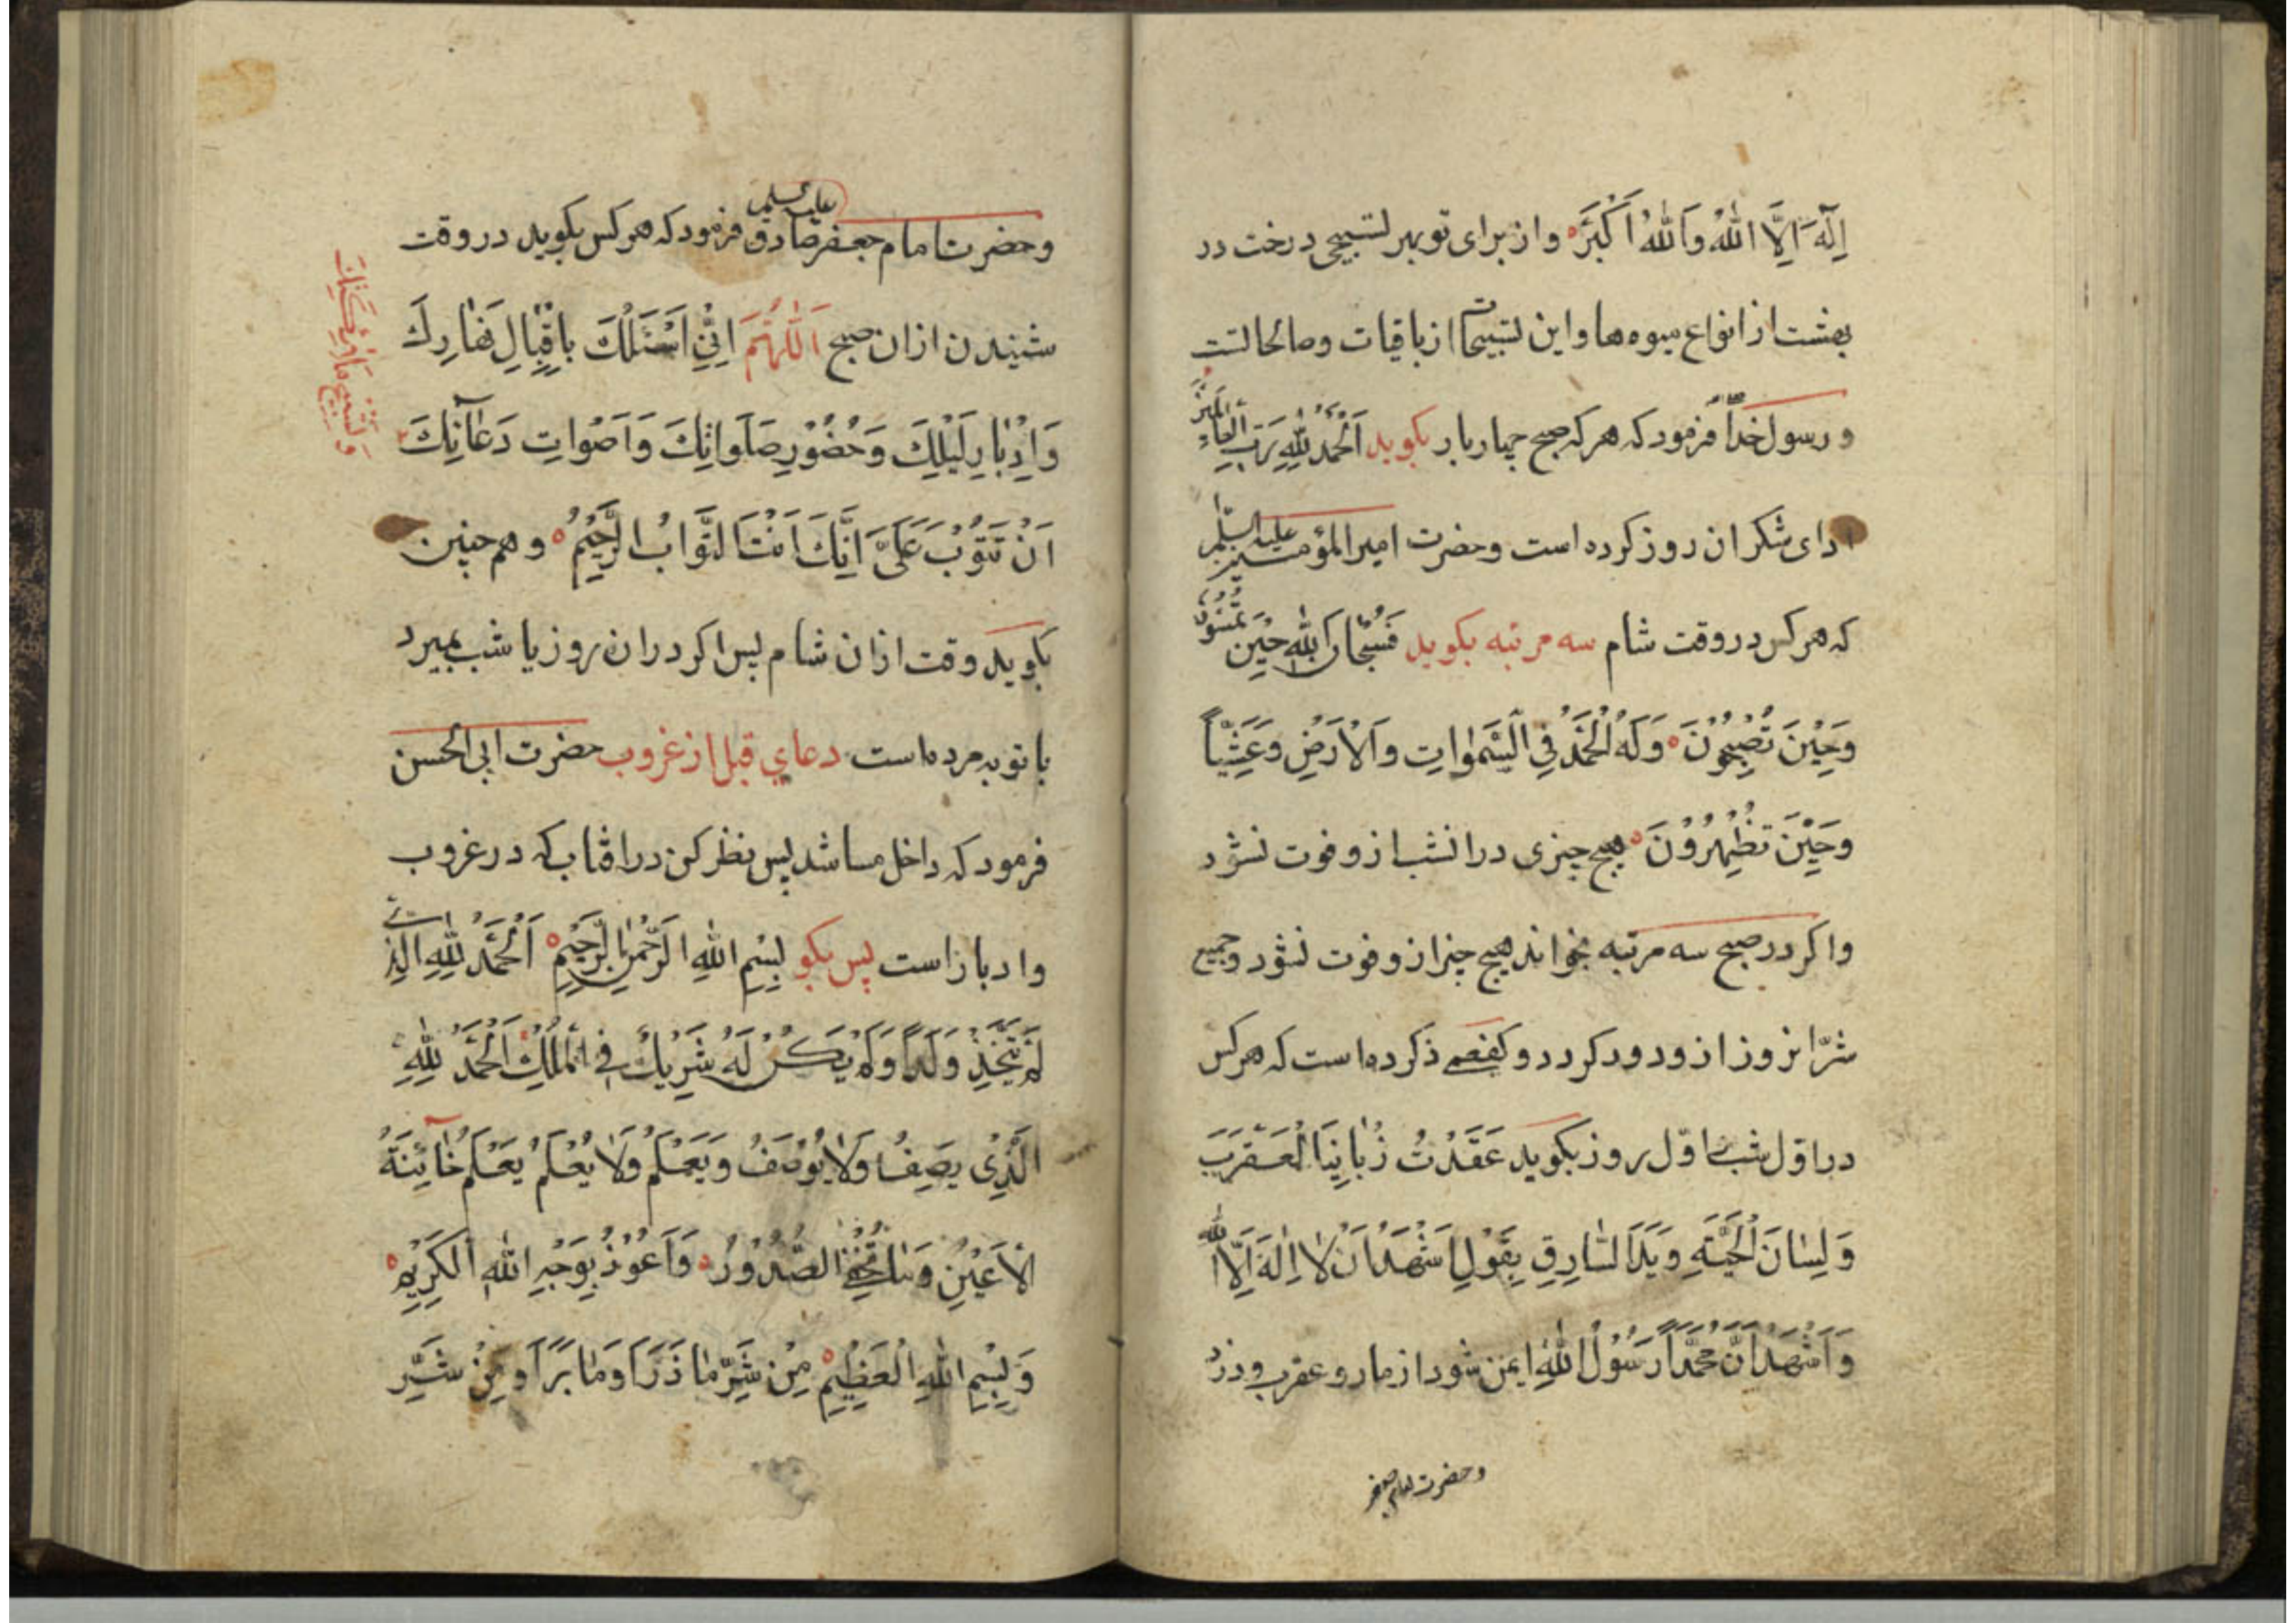 اِلٰهَ اِلَّا اللّٰهُ وَاللّٰهُ اَكْبَرُ و از برای تو بهر تسبیحی درخت در
بهشت از انواع میوه ها و این تسبیحات از باقیات و صالحاتست
و رسول خدا فرمود که هر که صبح چهار بار بکوید اَلْحَمْدُ لِلّٰهِ رَبِّ الْعَالَمِينَ
ادای شکر ان روز کرده است و حضرت امیر المؤمنین علیه السلم
که هر کس در وقت شام سه مرتبه بکوید فَسُبْحَانَ اللّٰهِ حِيْنَ تُمْسُوْنَ
وَحِيْنَ تُصْبِحُوْنَ وَلَهُ الْحَمْدُ فِي السَّمٰوَاتِ وَالْاَرْضِ وَعَشِيّاً
وَحِيْنَ تُظْهِرُوْنَ هیچ چیزی در انشب از و فوت نشود
و اکر در صبح سه مرتبه بخواند هیچ چیز از و فوت نشود و جمیع
شرّ انروز از و دور کردد و کفعمی ذکر کرده است که هر کس
در اوّل شب یا اوّل روز بکوید عَقَدْتُ زُبَانِيَا الْعَقْرَبَ
وَلِسَانَ الْحَيَّةِ وَيَدَ السَّارِقِ بِقَوْلِ اَشْهَدُ اَنْ لَا اِلٰهَ اِلَّا اللّٰه
وَاَشْهَدُ اَنَّ مُحَمَّداً رَسُوْلُ اللّٰهِ ایمن شود از مار و عقرب و دزد
و حضرت امام جعفر
و حضرت امام جعفر صادق علیه السلم فرمود که هر کس بکوید در وقت
شنیدن اذان صبح اَللّٰهُمَّ اِنِّيْ اَسْئَلُكَ بِاِقْبَالِ نَهَارِكَ
وَاِدْبَارِ لَيْلِكَ وَحُضُوْرِ صَلَوَاتِكَ وَاَصْوَاتِ دَعَاتِكَ
وَتَسْبِيحِ مَلَائِكَتِكَ
اَنْ تَتُوْبَ عَلَيَّ اِنَّكَ اَنْتَ التَّوَّابُ الرَّحِيْمُ و هم چنین
بکوید وقت اذان شام پس اکر در ان روز یا شب بمیرد
با توبه مرده است دعای قبل از غروب حضرت ابی الحسن
فرمود که داخل مسا شد پس نظر کن در افتاب که در غروب
و ادبار است پس بکو بِسْمِ اللّٰهِ الرَّحْمٰنِ الرَّحِيْمِ اَلْحَمْدُ لِلّٰهِ الَّذِي
لَمْ يَتَّخِذْ وَلَداً وَلَمْ يَكُنْ لَهُ شَرِيْكٌ فِي الْمُلْكِ اَلْحَمْدُ لِلّٰهِ
الَّذِيْ يَصِفُ وَلَا يُوْصَفُ وَيَعْلَمُ وَلَا يُعْلَمُ يَعْلَمُ خَائِنَةَ
الْاَعْيُنِ وَمَا تُخْفِي الصُّدُوْرُ وَاَعُوْذُ بِوَجْهِ اللّٰهِ الْكَرِيْمِ
وَبِسْمِ اللّٰهِ الْعَظِيْمِ مِنْ شَرِّ مَا ذَرَاَ وَمَا بَرَاَ وَمِنْ شَرِّ